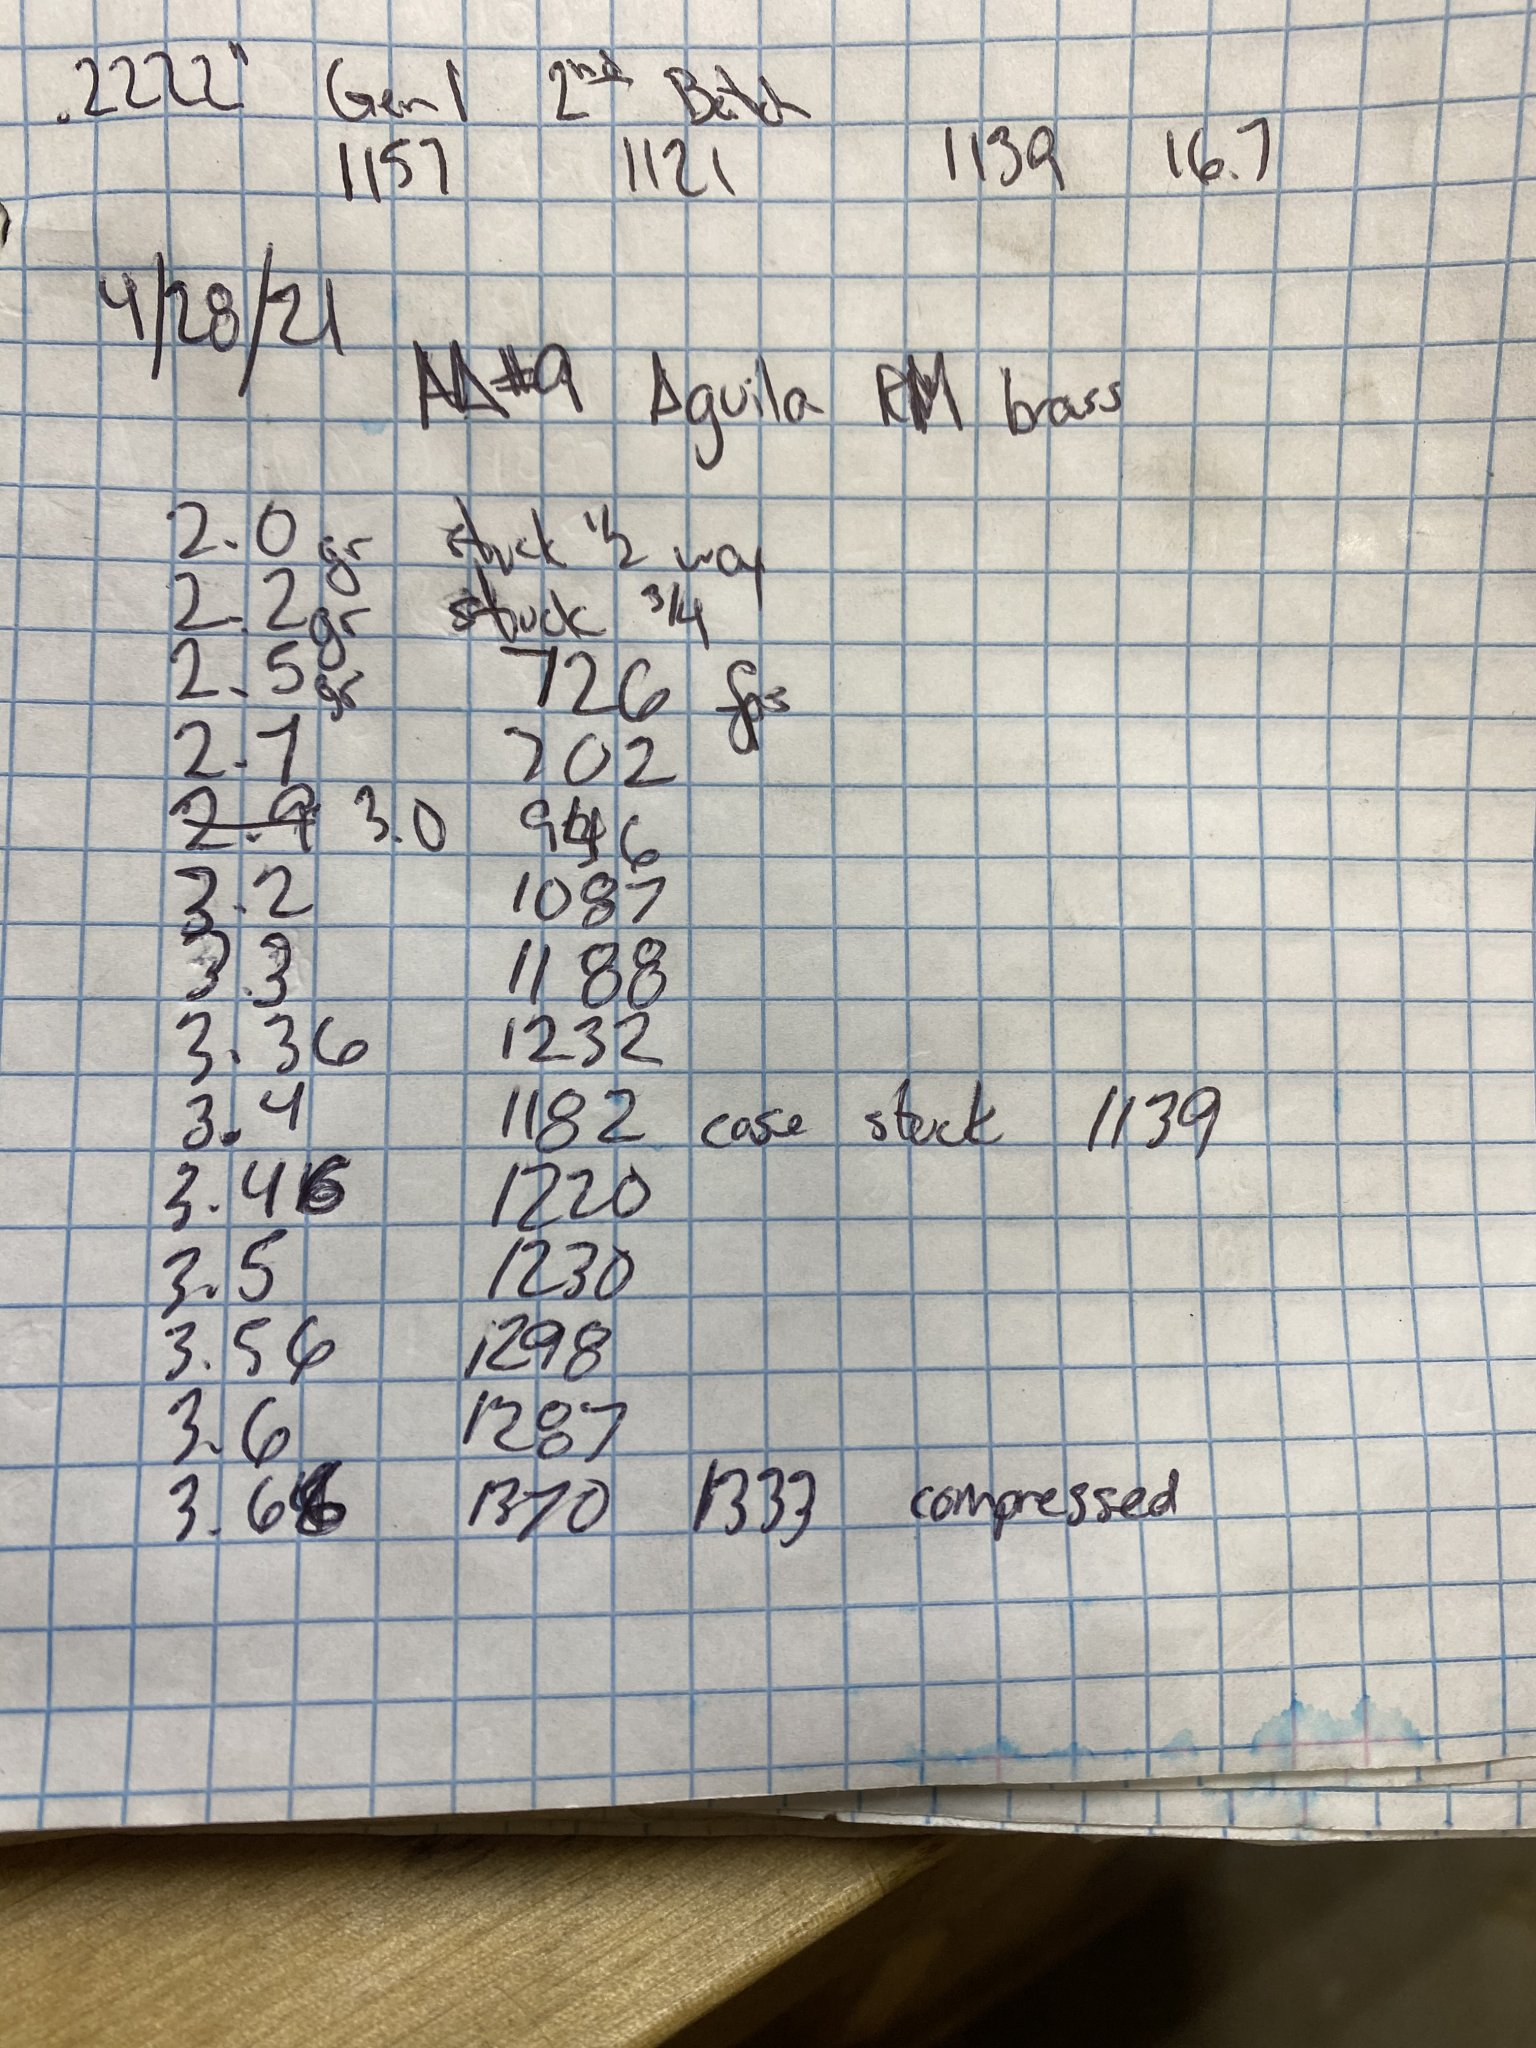 .2222" Gen 1 2nd Batch
1157 1121 1139 16.7
4/28/21
AA#9 Aguila RM brass
2.0 gr stuck 1/2 way
2.2 gr stuck 3/4
2.5 gr 726 fps
2.7 702
2.9 3.0 946
3.2 1087
3.3 1188
3.36 1232
3.4 1182 case stuck 1139
3.46 1220
3.5 1230
3.56 1298
3.6 1287
3.66 1370 1333 compressed